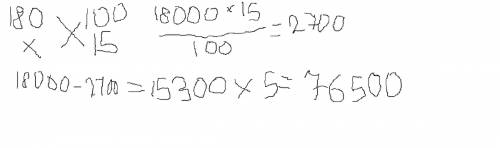 180 100 18000 × 15 / 100 = 2700
x × 15
18000 - 2700 = 15300 × 5 = 76500